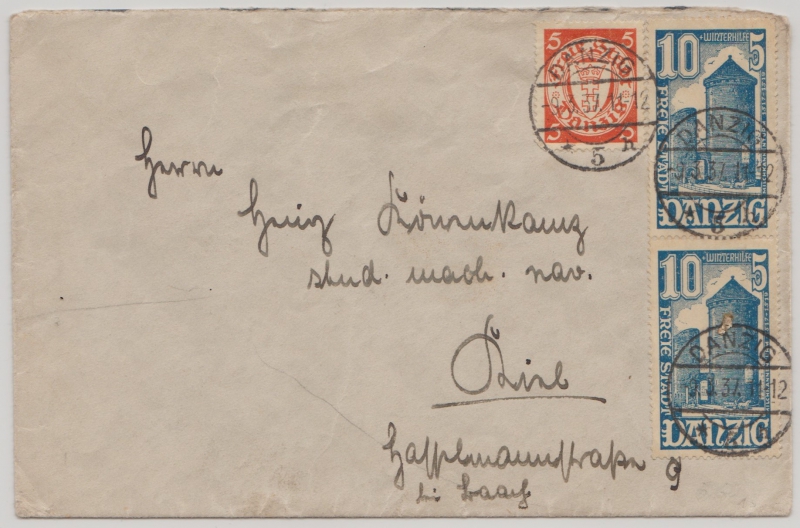 5 5
Danzig
5 5
DANZIG
-9.3.37.11-12
* 5 R
10 + WINTERHILFE 5
FREIE STADT
DANZIG
DANZIG
37.11-12
5
10 + WINTERHILFE 5
FREIE STADT
DANZIG
DANZIG
37.11-12
Herrn
Heinz Löwenkamz
stud. mach. nav.
Kiel
Hasselmannstraße 9
bei Laack